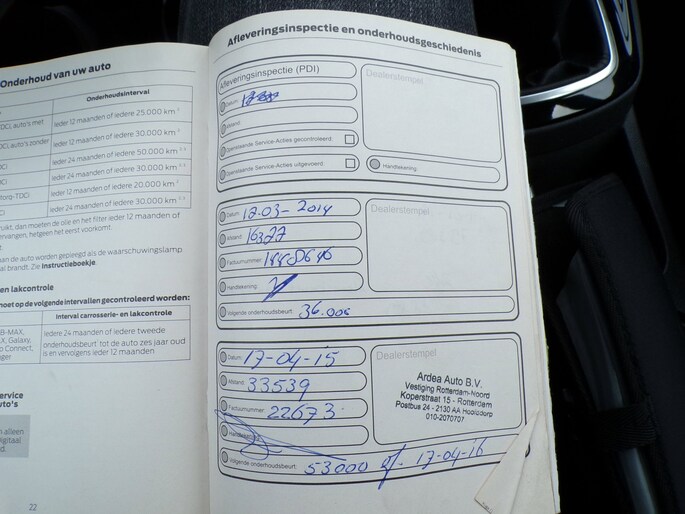 Onderhoud van uw auto
Onderhoudsinterval
Ieder 12 maanden of iedere 25.000 km
DCi, auto's met
Ieder 12 maanden of iedere 30.000 km
DCi, auto's zonder
Ieder 24 maanden of iedere 50.000 km
Ieder 24 maanden of iedere 30.000 km
Ieder 12 maanden of iedere 20.000 km
torq-TDCi
Ieder 24 maanden of iedere 30.000 km
ruikt, dan moeten de olie en het filter ieder 12 maanden of
vervangen, hetgeen het eerst voorkomt.
kan de auto worden gepleegd als de waarschuwingslamp
al brandt. Zie Instructieboekje
en lakcontrole
moet op de volgende intervallen gecontroleerd worden:
Interval carrosserie- en lakcontrole
B-MAX,
X, Galaxy,
Connect,
Ieder 24 maanden of iedere tweede
onderhoudsbeurt tot de auto zes jaar oud
is en vervolgens ieder 12 maanden
service
auto's
n alleen
digitaal
d.
22
Afleveringsinspectie en onderhoudsgeschiedenis
Afleveringsinspectie (PDI)
Dealerstempel
Datum:
Afstand:
Openstaande Service-Acties gecontroleerd:
Openstaande Service-Acties uitgevoerd:
Handtekening:
Datum: 12-03-2014
Dealerstempel
Afstand: 16327
Factuurnummer:
Handtekening:
Volgende onderhoudsbeurt: 36.000
Datum: 17-04-15
Dealerstempel
Afstand: 33539
Factuurnummer: 22673
Handtekening:
Ardea Auto B.V.
Vestiging Rotterdam-Noord
Koperstraat 15 - Rotterdam
Postbus 24 - 2130 AA Hoofddorp
010-2070707
Volgende onderhoudsbeurt: 53000 of 17-04-16